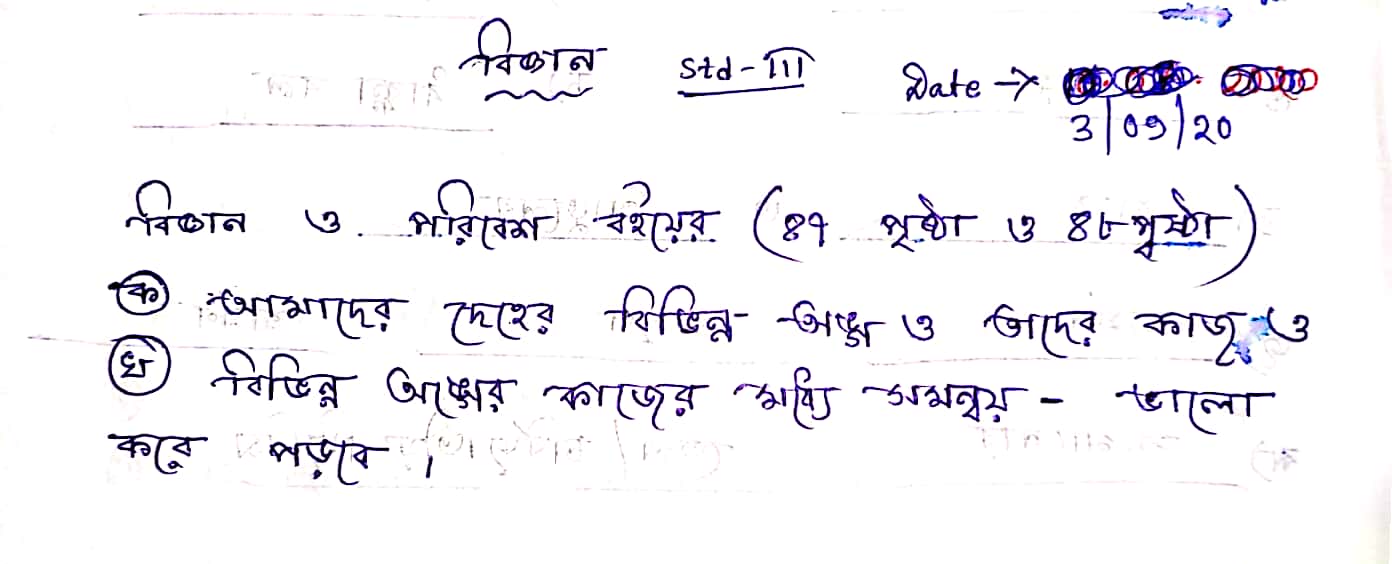 বিজ্ঞান Std-III Date → 
3/09/20
বিজ্ঞান ও পরিবেশ বইয়ের (৪৭ পৃষ্ঠা ও ৪৮ পৃষ্ঠা)
ক আমাদের দেহের বিভিন্ন অঙ্গ ও তাদের কাজ ও
খ বিভিন্ন অঙ্গের কাজের মধ্যে সমন্বয় - ভালো
করে পড়বে।